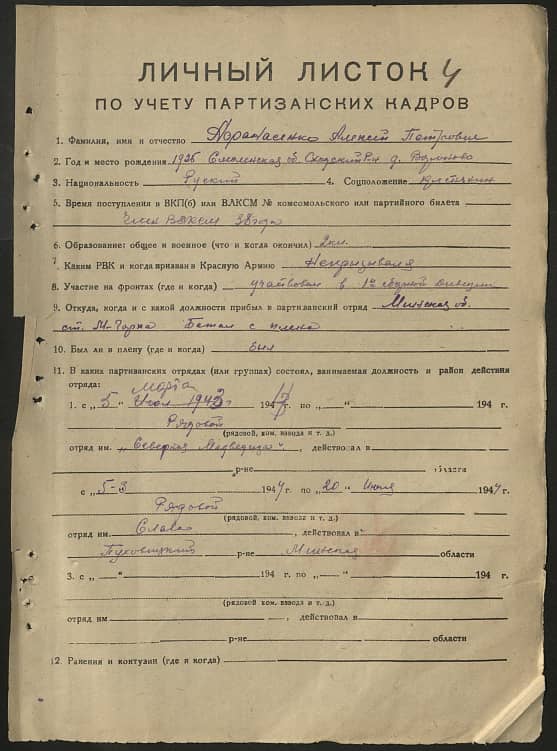 ЛИЧНЫЙ ЛИСТОК 4
ПО УЧЕТУ ПАРТИЗАНСКИХ КАДРОВ
1. Фамилия, имя и отчество Алексей Петрович
2. Год и место рождения Смоленская об. д.
3. Национальность Руский 4. Соцположение
5. Время поступления в ВКП(б) или ВЛКСМ № комсомольского или партийного билета
6. Образование: общее и военное (что и когда окончил) 2кл.
7. Каким РВК и когда призван в Красную Армию
8. Участие на фронтах (где и когда) участвовал в
9. Откуда, когда и с какой должности прибыл в партизанский отряд Минская об.
ст. М-Горка Бежал с плена
10. Был ли в плену (где и когда) был
11. В каких партизанских отрядах (или группах) состоял, занимаемая должность и район действия
отряда:
марта
1. с „5“ 1943г 194 г. по „—“ 194 г.
Рядовой
(рядовой, ком. взвода и т. д.)
отряд им. „Северная Медведица“, действовал в
р-не области
с „5-3 1944г. по „20“ Июля 1944 г.
Рядовой
(рядовой, ком. взвода и т. д.)
отряд им Слава, действовал в
Пуховицкий р-не Минская области
3. с „—“ 194 г. по „—“ 194 г.
(рядовой ком. взвода и т. д.)
отряд им , действовал в
р-не области
12. Ранения и контузии (где и когда)